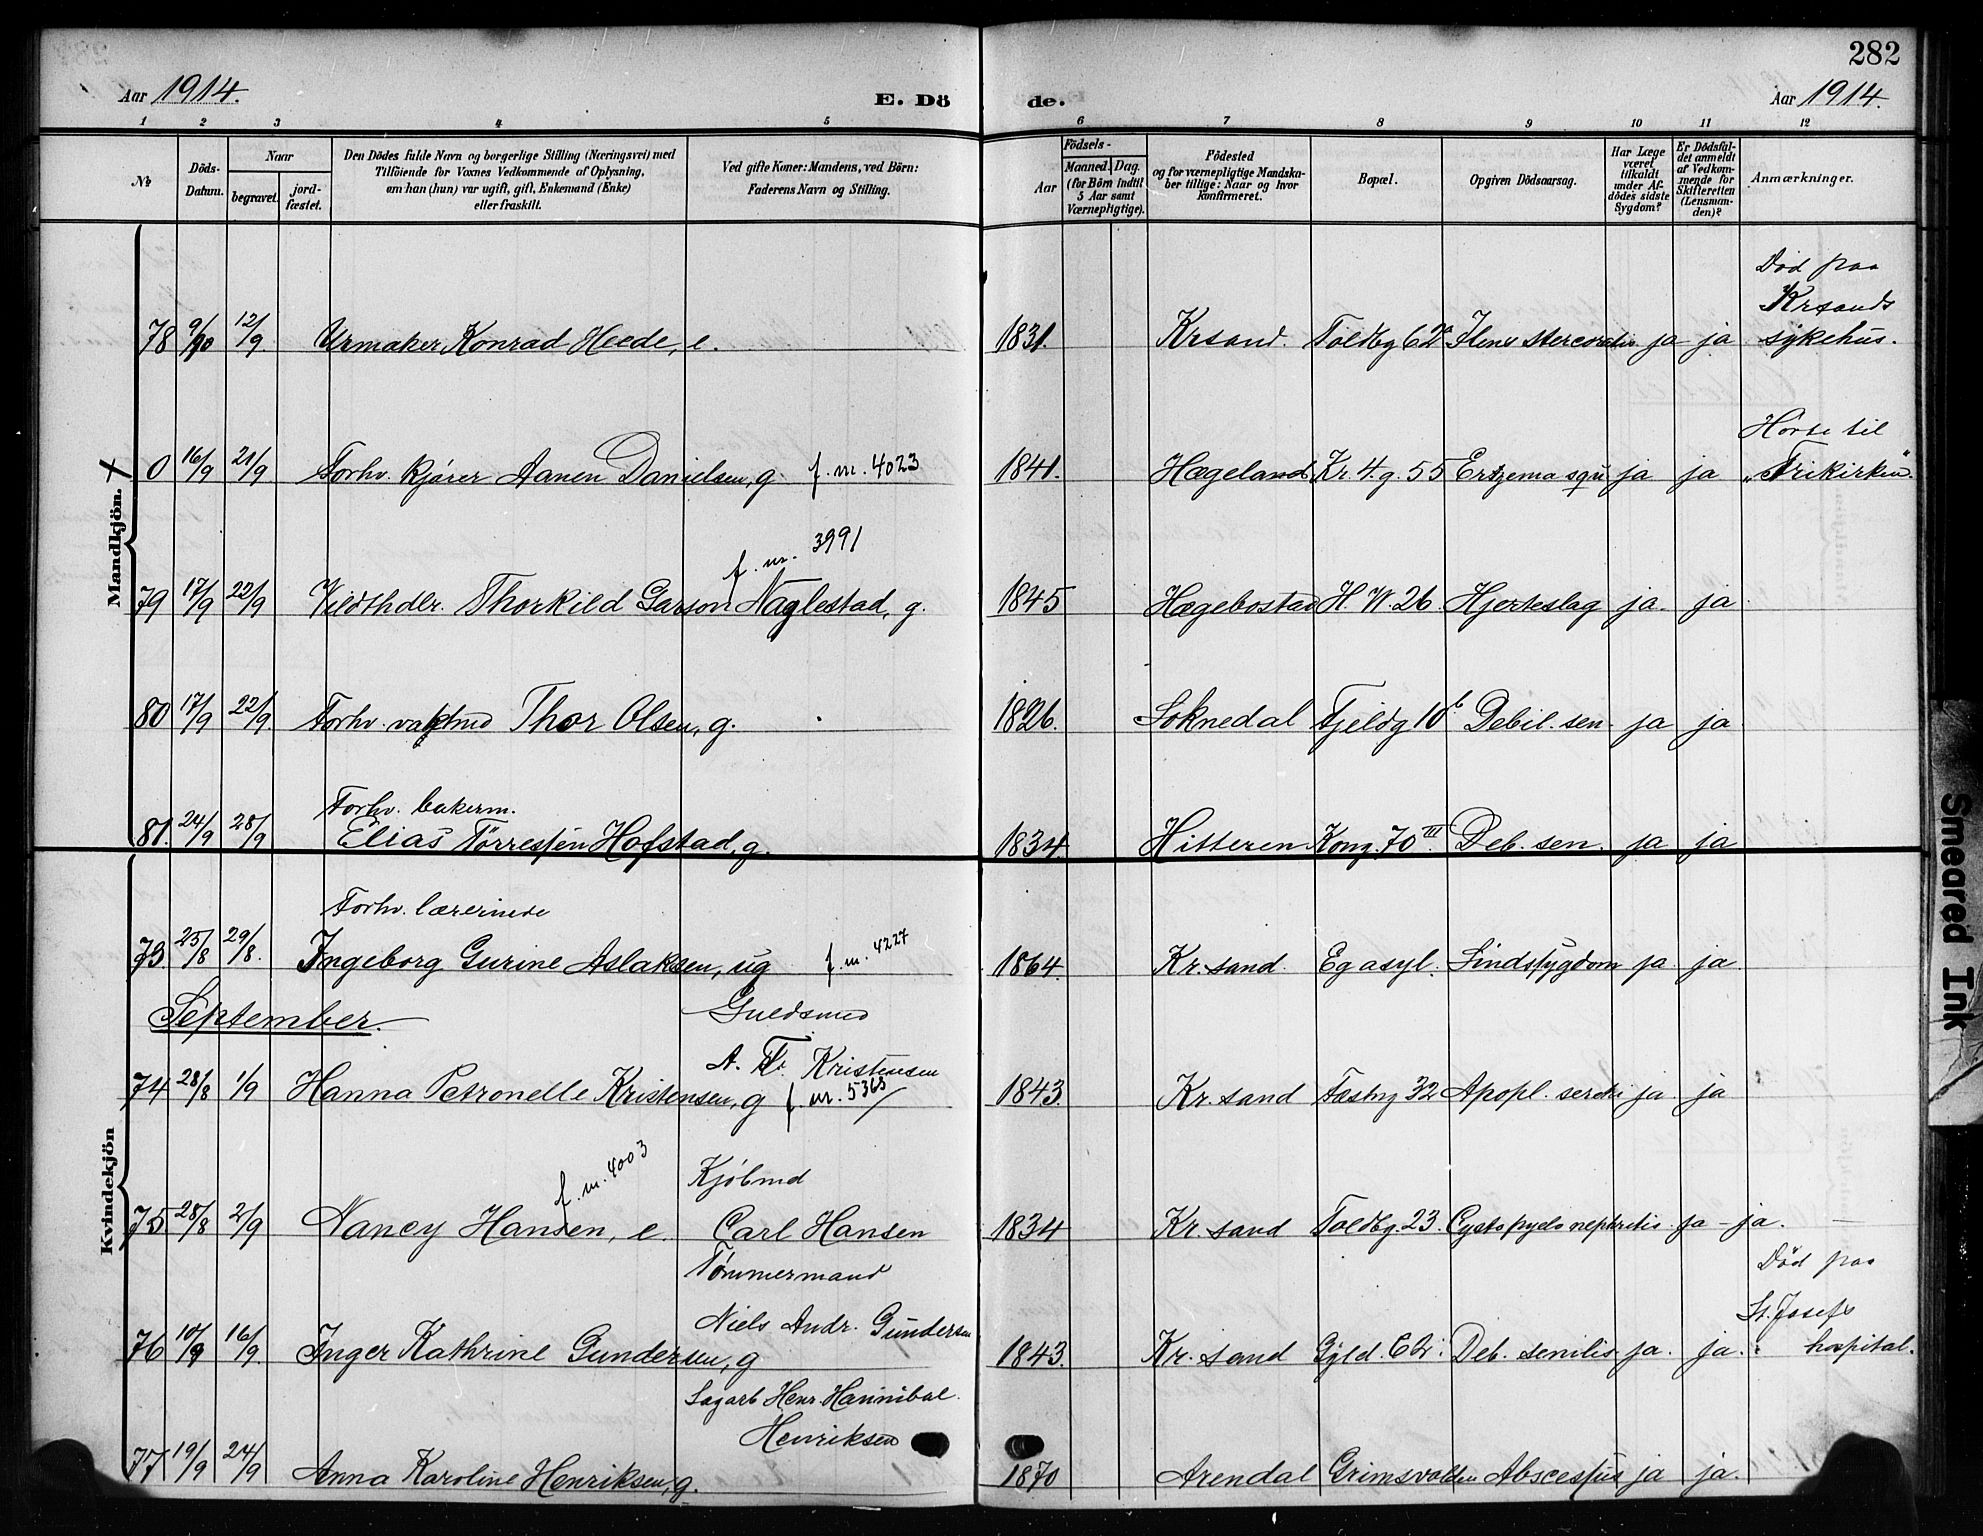 282
Aar 1914.
E. Dö de.
Aar 1914.
1 2 3 4 5 6 7 8 9 10 11 12
No
Döds-Datum.
Naar
begravet.
jord-fæstet.
Den Dödes fulde Navn og borgerlige Stilling (Næringsvei) med
Tilföiende for Voxnes Vedkommende af Oplysning,
om han (hun) var ugift, gift, Enkemand (Enke)
eller fraskilt.
Ved gifte Koner: Mandens, ved Börn:
Faderens Navn og Stilling.
Födsels-
Aar
Maaned. Dag.
(for Börn indtil
5 Aar samt
Værnepligtige).
Födested
og for værnepligtige Mandska-
ber tillige: Naar og hvor
konfirmeret.
Bopæl.
Opgiven Dödsaarsag.
Har Læge
været
tilkaldt
under Af-
dödes sidste
Sygdom?
Er Dödsfal-
det anmeldt
af Vedkom-
mende for
Skifteretten
(Lensman-
den)?
Anmærkninger.
Mandkjön.
Død paa
Krsands
78 9/10 12/9 Urmaker Konrad Heede, e. 1831. Krsand. Toldbg 62 Ilens stercoralis ja ja sykehus.
Hørte til
0 16/9 21/9 Forhv. kjører Aanen Danielsen, g. f. nr. 4023 1841. Hægeland Kr. 4. g. 55 squ ja ja "Frikirken".
f. nr. 3991
79 17/9 22/9 Vildthdlr. Thorkild Garson Naglestad, g. 1845 Hægebostad H. W. 26. Hjerteslag ja ja
80 17/9 22/9. Forhv. Thor Olsen, g. 1826. Soknedal Fjeldg 10b Debil. sen. ja ja
Forhv. bakerm.
81. 24/9 28/9 Elias Tørressen Hofstad, g. 1834. Hitteren Kong. 70 III. Deb. sen. ja ja
Kvindekjön
Forhv. lærerinde
73. 25/8 29/8. Ingeborg Gurine Aslaksen, ug f. nr. 4227 1864. Kr. sand. Eg asyl. Sindssygdom ja ja
September.
Guldsmed
A. Kristensen
74 28/8 1/9 Hanna Petronelle Kristensen, g f. nr. 5363 1843. Kr. sand Fæstng 32 Apopl. ja ja
f. nr. 4003
Kjøbmd
75 28/8 2/9 Nancy Hansen, e. Carl Hansen 1834 Kr. sand Toldbg. 23. Cystopyelonephritis ja - ja.
Tømmermand
Niels Andr. Gundersen
Død paa
St. Josefs
76 10/9 16/9. Inger Kathrine Gundersen, g 1843. Kr. sand Gyld. 62 Deb. senilis ja. ja. hospital.
Sagarb Henr. Hannibal
Henriksen
77 19/9 24/9 Anna Karoline Henriksen, g. 1870 Arendal Grimsvolden Abscessus ja ja.
Smeared Ink